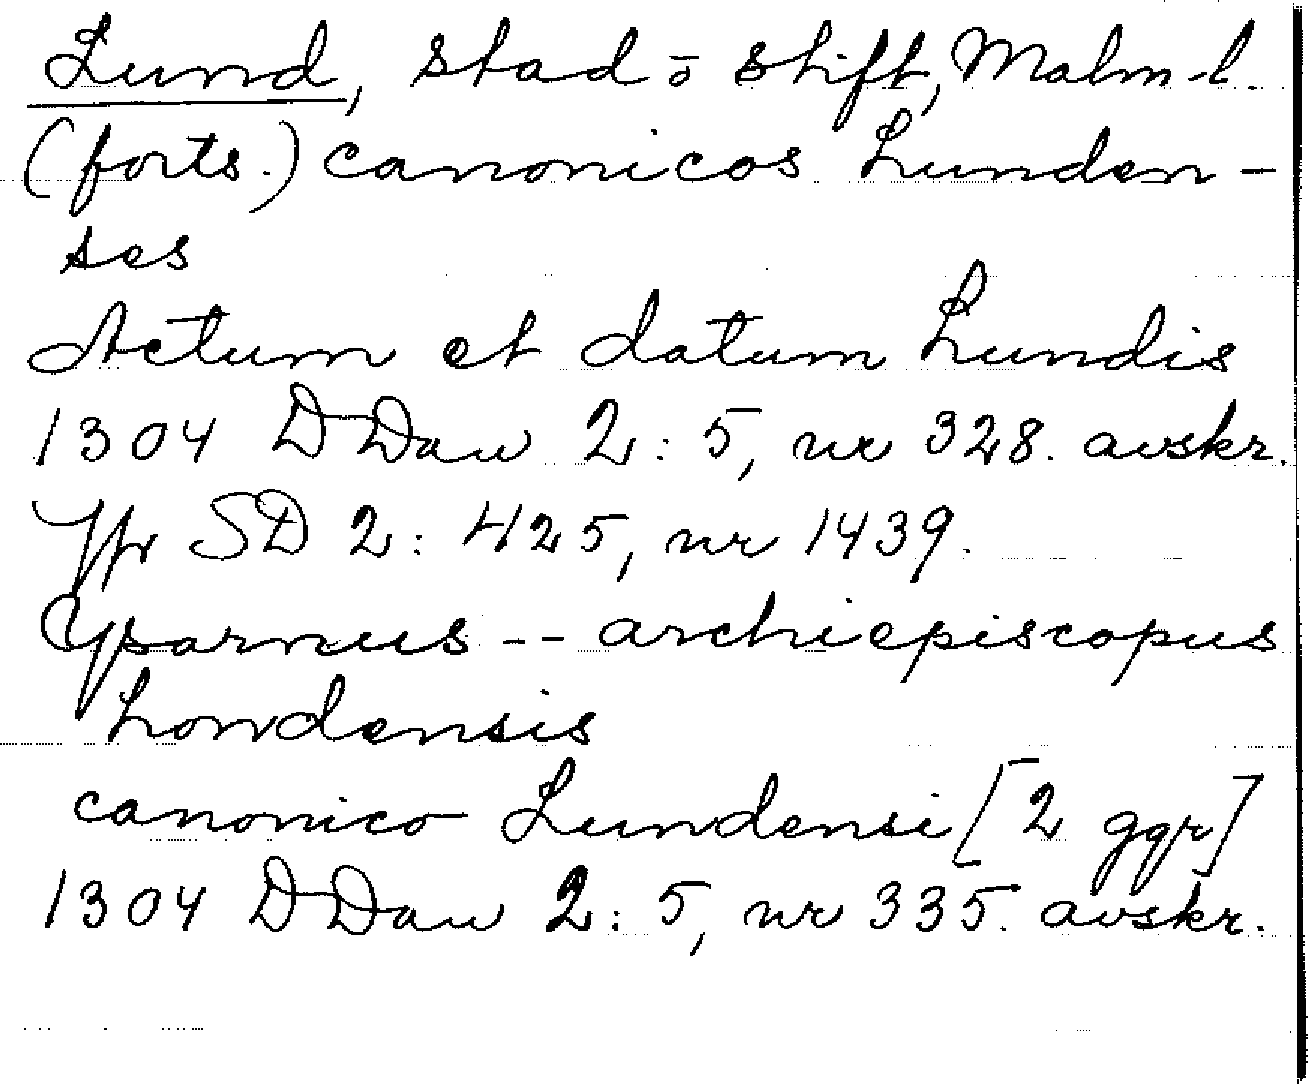 Lund, stad o stift, Malm-l.
(forts.) canonicos Lunden-
ses
Actum et datum Lundis
1304 DDan 2:5, nr 328. avskr.
Jfr SD 2: 425, nr 1439.
Ysarnus -- archiepiscopus
Londensis
canonico Lundensi [2 ggr]
1304 DDan 2:5, nr 335. avskr.